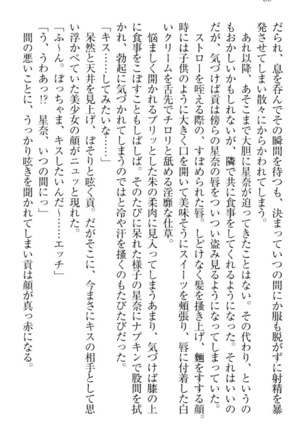 だられ、息を呑んでその瞬間を待つも、決まっていつの間にか服も脱がずに射精を暴
発させてしまい散々にからかわれてしまう。
あれ以降、あそこまで大胆に星奈が迫ってきたことはない。その代わり、というの
もおかしいかもしれないが、隣で共に食事をしてくれるようになった。それはいいの
だが、気づけば貢は傍らの星奈の唇をついつい盗み見るようになってしまっていた。
ストローを咥える際の、すぼめられた唇。しどけなく髪を掻き上げ、麺をすする顔。
時には子供のように大きく口を開いて美味そうにスイーツを頬張り、唇に付着した白
いクリームを舌先でチロリと舐める淫靡な仕草。
悩ましく開かれるプリッとした朱の柔肉に見入ってしまうあまり、気づけば膝の上
に食事をこぼすこともしばしば。そのたびに呆れた様子の星奈にナプキンで股間を拭
かれ、勃起に気づかれてしまわないかと冷や汗を掻くのもたびたびだった。
「キス……してみたいな……」
呆然と天井を見上げ、ぼそりと呟く貢。だがそこに、今まさにキスの相手として思
い浮かべていた美少女の顔がニュッと現れた。
「ふ～ん。ぼっちゃま、キスしたいんだ～……エッチ」
「う、うわあっ!?　星奈、いつの間にっ」
間の悪いことに、うっかり呟きを聞かれてしまい貢は顔が真っ赤になる。